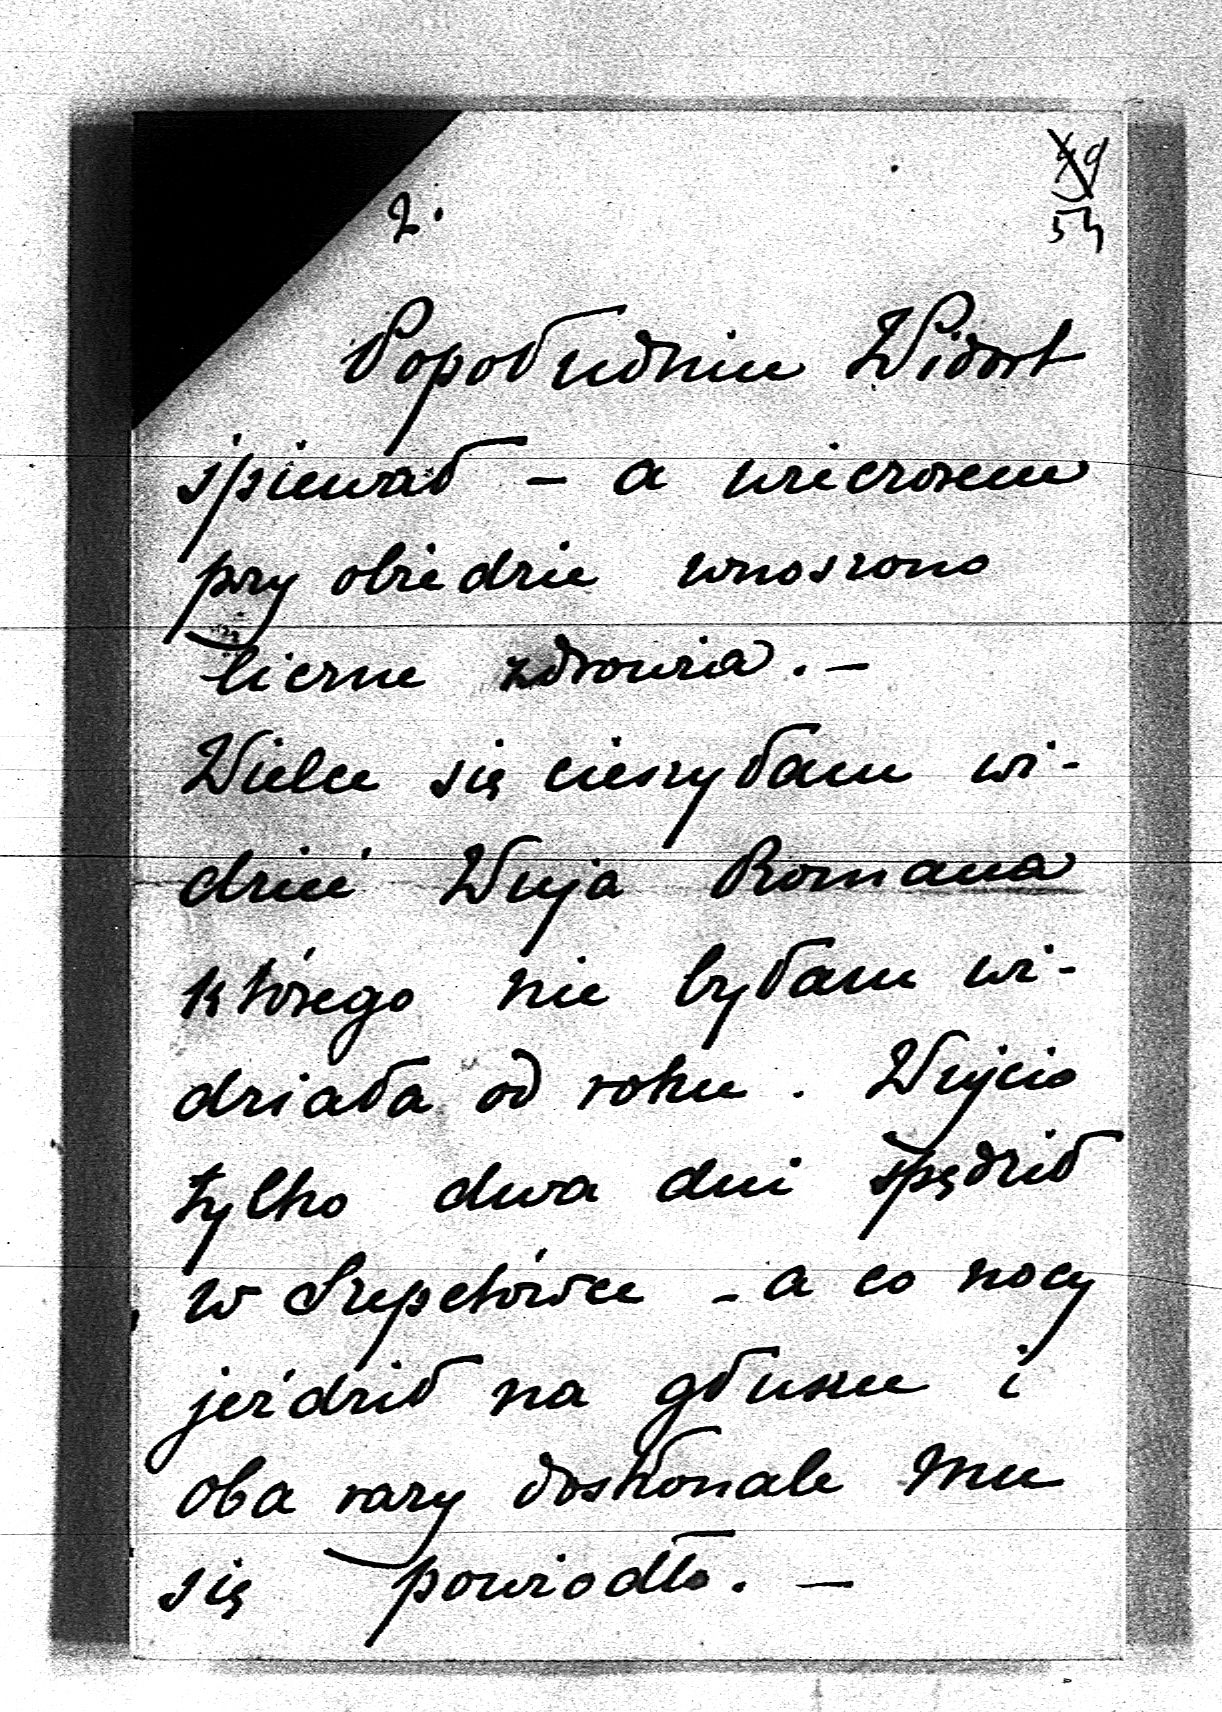 2.
49
54
Popołudniu Widort
śpiewał – a wieczorem
przy obiedzie wnoszono
liczne zdrowia. –
Wielce się cieszyłam wi-
dzieć Wuja Romana
którego nie byłam wi-
działa od roku. Wujcio
tylko dwa dni spędził
w Szepetówce – a co nocy
jeździł na głuszce i
oba razy doskonale Mu
się powiodło. –